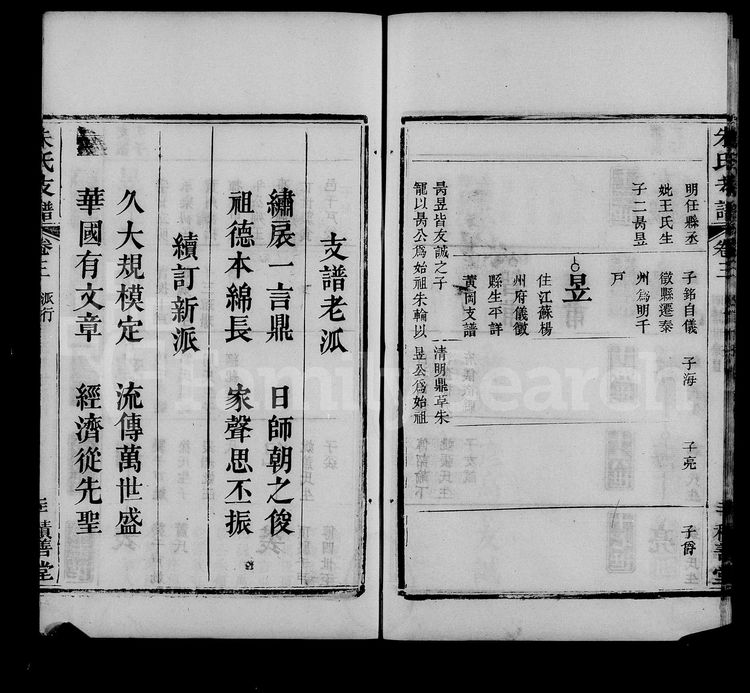 朱氏支譜
卷三
三
積善堂
明任縣丞
妣王氏生
子二㫤昱
子銘自儀
徵縣遷泰
州爲明千
戶
子海
子亮
子爵
昱
住江蘇楊
州府儀徵
縣生平詳
黃岡支譜
㫤昱皆友誠之子
寵以㫤公爲始祖朱輪以
清明鼎草朱
昱公爲始祖
支譜老派
繡扆一言鼎　日師朝之俊
祖德本綿長　家聲思丕振
續訂新派
久大規模定　流傳萬世盛
華國有文章　經濟從先聖
朱氏支譜
卷三
派行
積善堂
FamilySearch